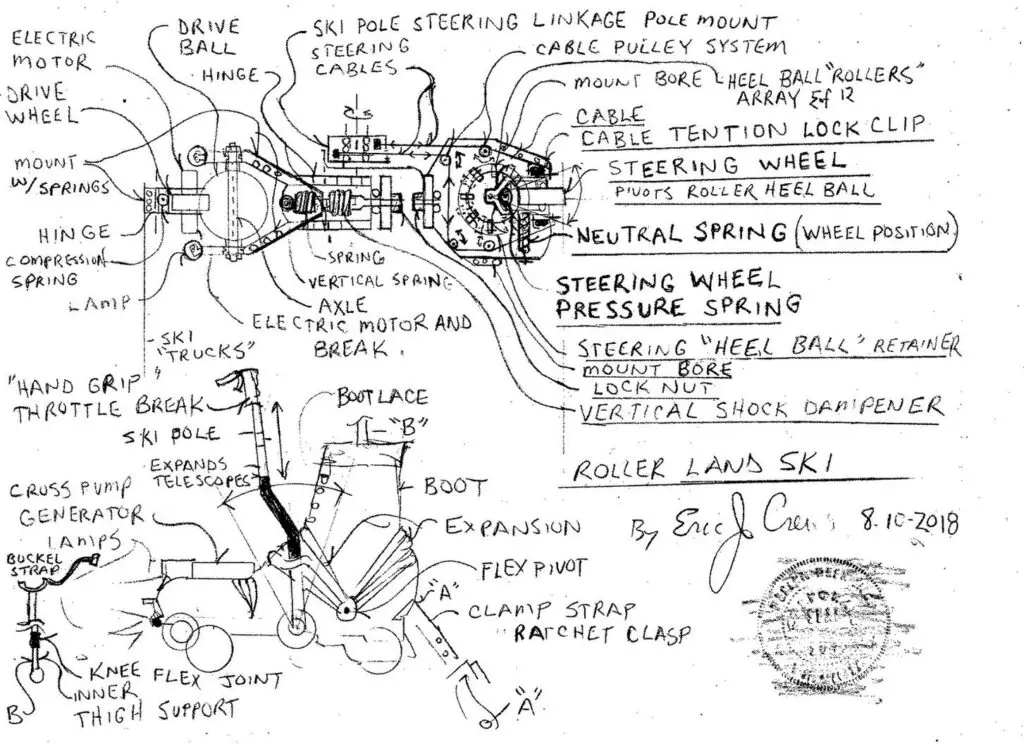 ELECTRIC
MOTOR
DRIVE
WHEEL
MOUNT
W/ SPRINGS
HINGE
COMPRESSION
SPRING
LAMP
DRIVE
BALL
HINGE
SKI POLE STEERING LINKAGE POLE MOUNT
STEERING
CABLES
CABLE PULLEY SYSTEM
MOUNT BORE
HEEL BALL "ROLLERS"
ARRAY Of 12
CABLE
CABLE TENTION LOCK CLIP
STEERING WHEEL
PIVOTS ROLLER HEEL BALL
NEUTRAL SPRING (WHEEL POSITION)
STEERING WHEEL
PRESSURE SPRING
STEERING "HEEL BALL" RETAINER
MOUNT BORE
LOCK NUT
VERTICAL SHOCK DAMPENER
SPRING
VERTICAL SPRING
AXLE
ELECTRIC MOTOR AND
BREAK.
SKI
"TRUCKS"
"HAND GRIP"
THROTTLE BREAK
SKI POLE
EXPANDS
TELESCOPES
BOOT LACE
"B"
BOOT
EXPANSION
FLEX PIVOT
"A"
CLAMP STRAP
RATCHET CLASP
"A"
CRUSS PUMP
GENERATOR
LAMPS
BUCKEL
STRAP
KNEE FLEX JOINT
INNER
THIGH SUPPORT
B
ROLLER LAND SKI
By Eric J 8-10-2018